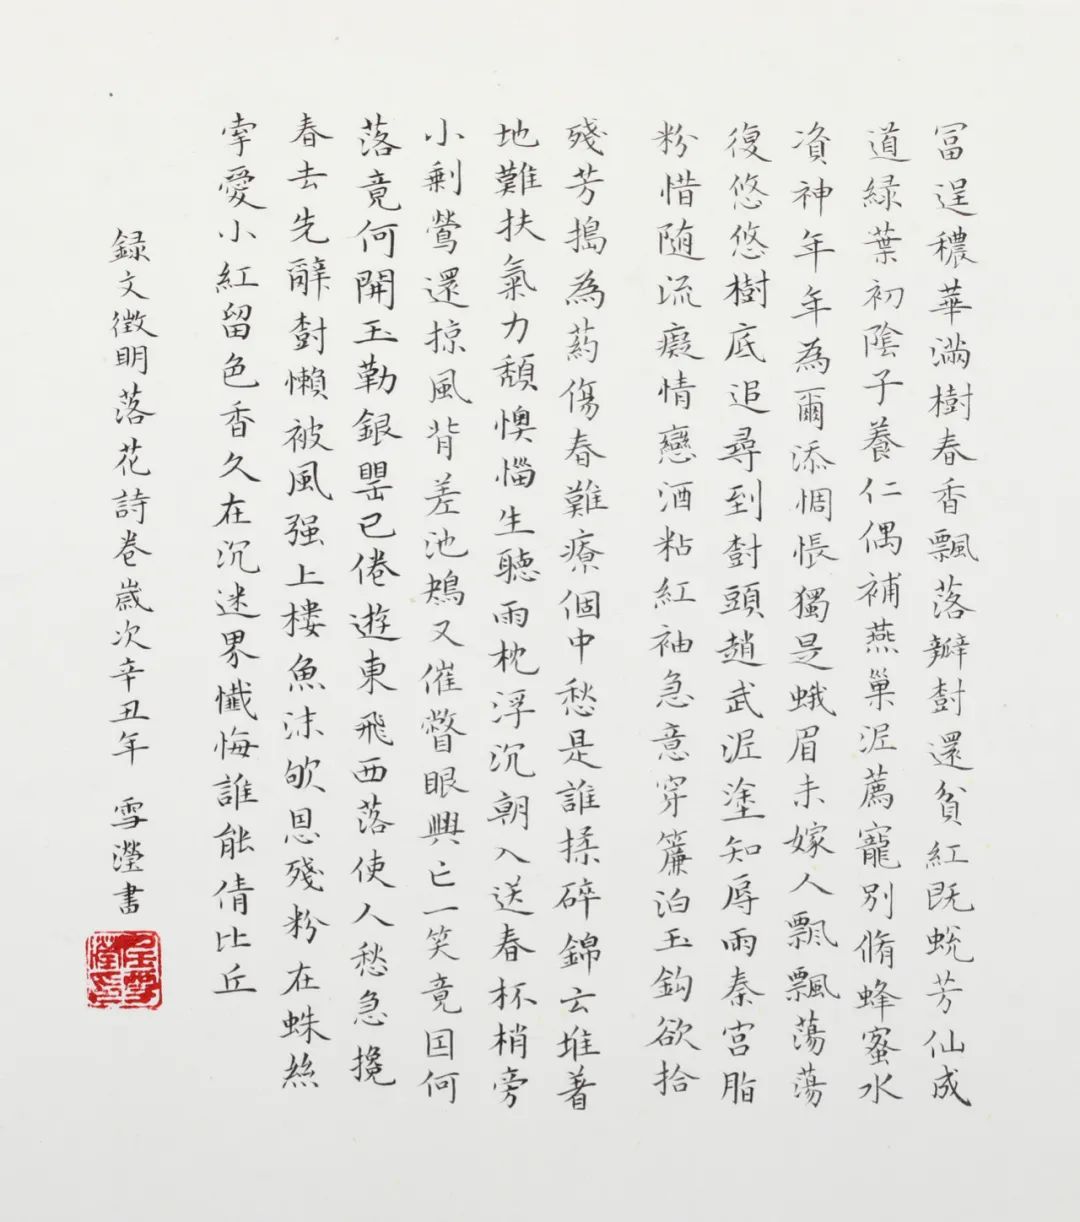 冨逞穠華滿樹春香飄落瓣樹還貧紅既蛻芳仙成
道緑葉初陰子養仁偶補燕巢泥薦寵別脩蜂蜜水
資神年年為爾添惆悵獨是蛾眉未嫁人飄飄蕩蕩
復悠悠樹底追尋到樹頭趙武泥塗知辱雨秦宮脂
粉惜随流癡情戀酒粘紅袖急意穿簾泊玉鈎欲拾
殘芳搗為葯傷春難療個中愁是誰揉碎錦云堆著
地難扶氣力頹懊惱生聽雨枕浮沉朝入送春杯梢旁
小剩鶯還掠風背差池鴂又催瞥眼興亡一笑竟因何
落竟何開玉勒銀罌已倦遊東飛西落使人愁急攙
春去先辭樹懶被風强上樓魚沫欨恩殘粉在蛛絲
牽愛小紅留色香久在沉迷界懺悔誰能倩比丘
録文徵明落花詩卷歲次辛丑年 雪瀅書